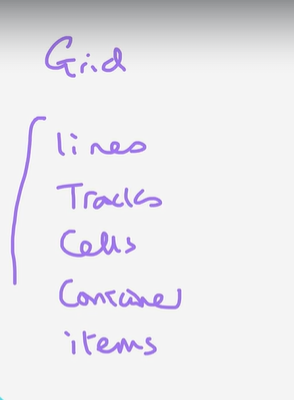 Grid
lines
Tracks
Cells
Container
items